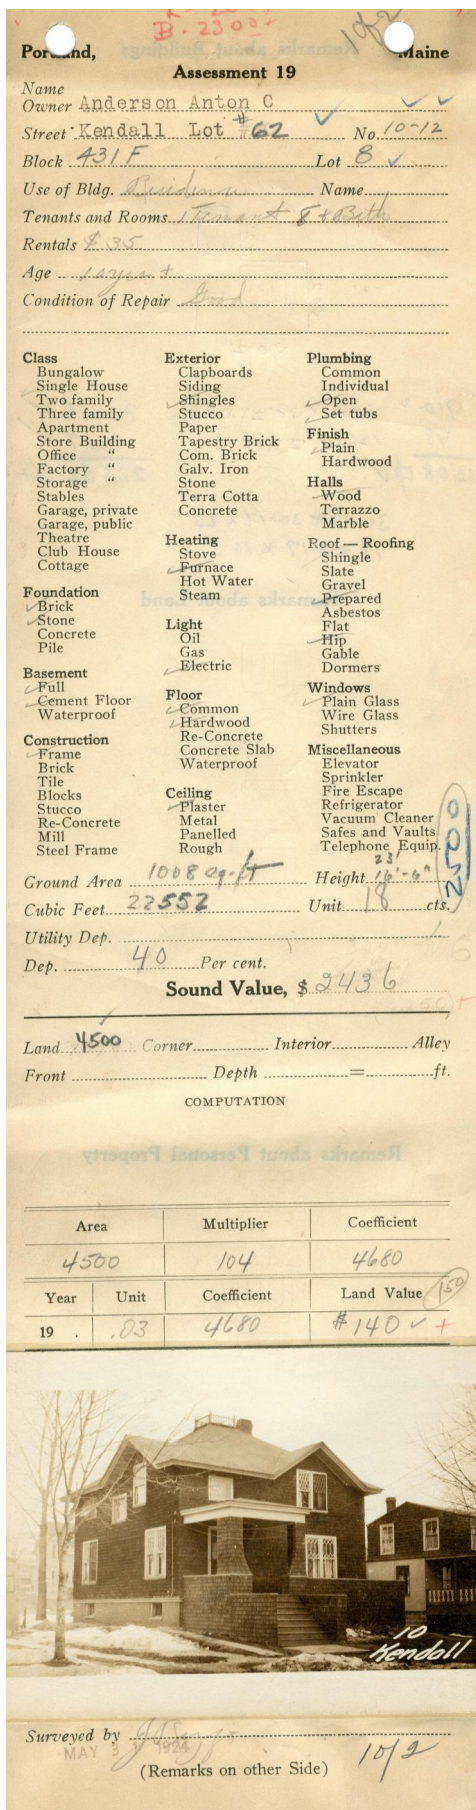 B. 2300 +
1 of 2
Portland, Maine
Assessment 19
Name
Owner Anderson Anton C
Street Kendall Lot #62 No. 10-12
Block 431 F Lot 8
Use of Bldg. Residence Name
Tenants and Rooms 1 Tenant 8 + Bath
Rentals $ 35
Age 10 yrs +
Condition of Repair Good
Class
Bungalow
Single House
Two family
Three family
Apartment
Store Building
Office "
Factory "
Storage "
Stables
Garage, private
Garage, public
Theatre
Club House
Cottage
Foundation
Brick
Stone
Concrete
Pile
Basement
Full
Cement Floor
Waterproof
Construction
Frame
Brick
Tile
Blocks
Stucco
Re-Concrete
Mill
Steel Frame
Exterior
Clapboards
Siding
Shingles
Stucco
Paper
Tapestry Brick
Com. Brick
Galv. Iron
Stone
Terra Cotta
Concrete
Heating
Stove
Furnace
Hot Water
Steam
Light
Oil
Gas
Electric
Floor
Common
Hardwood
Re-Concrete
Concrete Slab
Waterproof
Ceiling
Plaster
Metal
Panelled
Rough
Plumbing
Common
Individual
Open
Set tubs
Finish
Plain
Hardwood
Halls
Wood
Terrazzo
Marble
Roof — Roofing
Shingle
Slate
Gravel
Prepared
Asbestos
Flat
Hip
Gable
Dormers
Windows
Plain Glass
Wire Glass
Shutters
Miscellaneous
Elevator
Sprinkler
Fire Escape
Refrigerator
Vacuum Cleaner
Safes and Vaults
Telephone Equip.
2500
23'
Ground Area 1008 sq-ft Height 16'-6"
Cubic Feet 22552 Unit 18 cts.
Utility Dep.
Dep. 40 Per cent.
Sound Value, $ 2436
Land 4500 Corner Interior Alley
Front Depth = ft.
COMPUTATION
Remarks about Personal Property
Area Multiplier Coefficient
4500 104 4680
Year Unit Coefficient Land Value 150
19 . .03 4680 $ 140 +
10
Kendall
Surveyed by
MAY 3 1924
1 of 2
(Remarks on other Side)